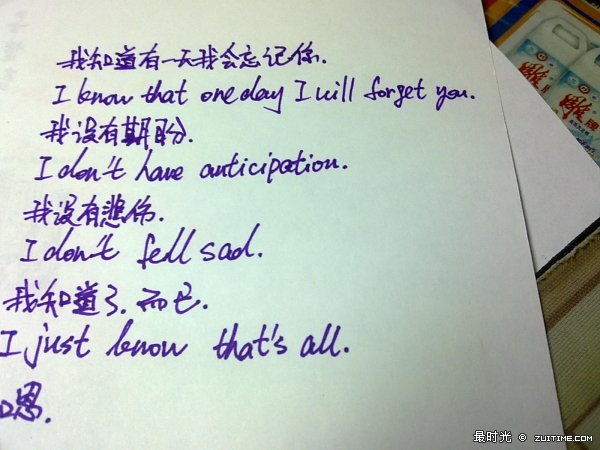 我知道有一天我会忘记你.
I know that one day I will forget you.
我没有期盼.
I don't have anticipation.
我没有悲伤.
I don't fell sad.
我知道了.而已.
I just know that's all.
嗯.
雕牌
最时光 © ZUITIME.COM